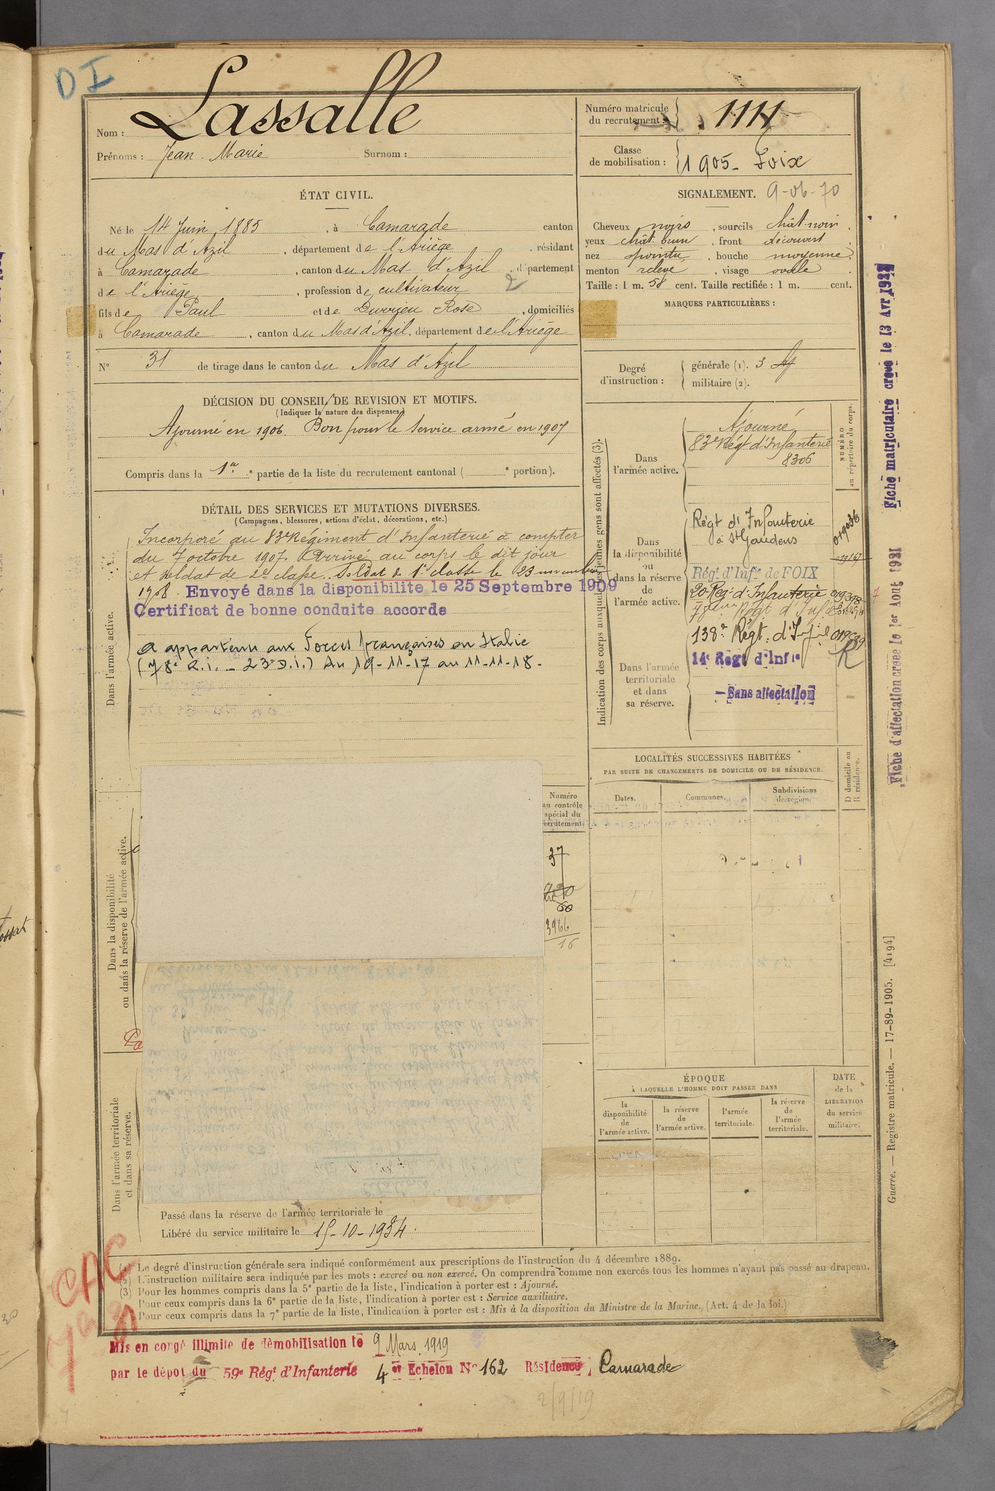 DI
Nom : Lassalle
Prénoms : Jean Marie Surnom :
Numéro matricule du recrutement : 1111
Classe de mobilisation : 1905 - Foix
ÉTAT CIVIL.
Né le 14 Juin 1885, à Camarade canton
du Mas d'Azil, département de l'Ariège, résidant
à Camarade, canton du Mas d'Azil, département
de l'Ariège, profession de cultivateur 2
fils de Paul et de Durrieu Rose, domiciliés
à Camarade, canton du Mas d'Azil, département de l'Ariège
N° 31 de tirage dans le canton du Mas d'Azil
SIGNALEMENT. 9-06-70
Cheveux noirs, sourcils chât-noir.
yeux chât. brun, front découvert
nez pointu, bouche moyenne
menton relevé, visage ovale
Taille : 1 m. 58 cent. Taille rectifiée : 1 m. cent.
MARQUES PARTICULIÈRES :
Degré d'instruction : générale (1). 3
militaire (2).
DÉCISION DU CONSEIL DE REVISION ET MOTIFS.
(Indiquer la nature des dispenses)
Ajourné en 1906. Bon pour le service armé en 1907
Compris dans la 1re partie de la liste du recrutement cantonal ( e portion).
DÉTAIL DES SERVICES ET MUTATIONS DIVERSES.
(Campagnes, blessures, actions d'éclat, décorations, etc.)
Dans l'armée active.
Incorporé au 83e Régiment d'Infanterie à compter
du 7 octobre 1907. Arrivé au corps le dit jour
et soldat de 2e classe. Soldat de 1e classe le 23 novembre
1908. Envoyé dans la disponibilité le 25 Septembre 1909
Certificat de bonne conduite accordé
a appartenu aux Forces françaises en Italie
(78e R.i. - 23e D.i.) du 19-11-17 au 11-11-18.
Indication des corps auxquels les jeunes gens sont affectés (3).
NUMÉRO au répertoire du corps.
Dans l'armée active.
Ajourné
83e Régt d'Infanterie
8306
Dans la disponibilité ou dans la réserve de l'armée active.
Régt d'Infanterie
à St Gaudens
Régt d'Infie de FOIX
20e Régt d'Infanterie
138e Régt. d'Infie
Dans l'armée territoriale et dans sa réserve.
14e Régt d'Infie
R
- Sans affectation
Fiche matriculaire créée le 13 Avr 1922
Fiche d'affectation créée le 1er Août 1921
LOCALITÉS SUCCESSIVES HABITÉES
PAR SUITE DE CHANGEMENTS DE DOMICILE OU DE RÉSIDENCE.
Dates. Communes. Subdivisions de région. D domicile ou R résidence.
Numéro au contrôle spécial du recrutement
37
60
3966
16
Dans la disponibilité ou dans la réserve de l'armée active.
Dans l'armée territoriale et dans sa réserve.
ÉPOQUE
À LAQUELLE L'HOMME DOIT PASSER DANS
la disponibilité de l'armée active. la réserve de l'armée active. l'armée territoriale. la réserve de l'armée territoriale.
DATE de la LIBÉRATION du service militaire.
Passé dans la réserve de l'armée territoriale le
Libéré du service militaire le 15-10-1934.
(1) Le degré d'instruction générale sera indiqué conformément aux prescriptions de l'instruction du 4 décembre 1889.
(2) L'instruction militaire sera indiquée par les mots : exercé ou non exercé. On comprendra comme non exercés tous les hommes n'ayant pas passé au drapeau.
(3) Pour les hommes compris dans la 5e partie de la liste, l'indication à porter est : Ajourné.
Pour ceux compris dans la 6e partie de la liste, l'indication à porter est : Service auxiliaire.
Pour ceux compris dans la 7e partie de la liste, l'indication à porter est : Mis à la disposition du Ministre de la Marine. (Art. 4 de la loi.)
Guerre. — Registre matricule. — 17-89-1905. [4194]
CAC
Mis en congé illimité de démobilisation le 9 Mars 1919
par le dépôt du 59e Régt d'Infanterie 4e Echelon N° 162 Résidence, Camarade
2/9/19